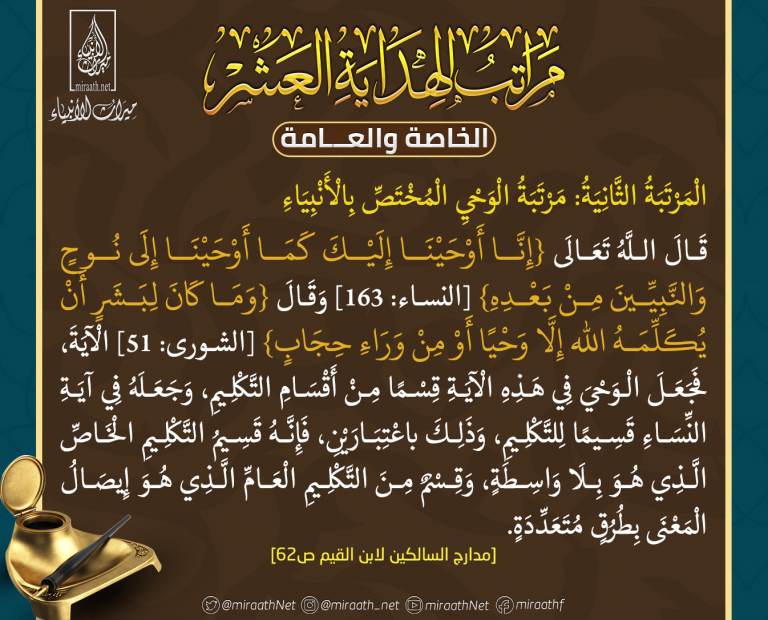 miraath.net
ميراث الأنبياء
مَرَاتِبُ الهِدَايَةِ العَشْر
الخاصة والعـــامة
الْمَرْتَبَةُ الثَّانِيَةُ: مَرْتَبَةُ الْوَحْيِ الْمُخْتَصِّ بِالْأَنْبِيَاءِ
قَالَ اللَّهُ تَعَالَى {إِنَّا أَوْحَيْنَا إِلَيْكَ كَمَا أَوْحَيْنَا إِلَى نُوحٍ
وَالنَّبِيِّينَ مِنْ بَعْدِهِ} [النساء: 163] وَقَالَ {وَمَا كَانَ لِبَشَرٍ أَنْ
يُكَلِّمَهُ الله إِلَّا وَحْيًا أَوْ مِنْ وَرَاءِ حِجَابٍ} [الشورى: 51] الْآيَةَ،
فَجَعَلَ الْوَحْيَ فِي هَذِهِ الْآيَةِ قِسْمًا مِنْ أَقْسَامِ التَّكْلِيمِ، وَجَعَلَهُ فِي آيَةِ
النِّسَاءِ قَسِيمًا لِلتَّكْلِيمِ، وَذَلِكَ باعْتِبَارَيْنِ، فَإِنَّهُ قَسِيمُ التَّكْلِيمِ الْخَاصِّ
الَّذِي هُوَ بِلَا وَاسِطَةٍ، وَقِسْمٌ مِنَ التَّكْلِيمِ الْعَامِّ الَّذِي هُوَ إِيصَالُ
الْمَعْنَى بِطُرُقٍ مُتَعَدِّدَةٍ.
[مدارج السالكين لابن القيم ص62]
@miraathNet @miraath_net miraathNet miraathf